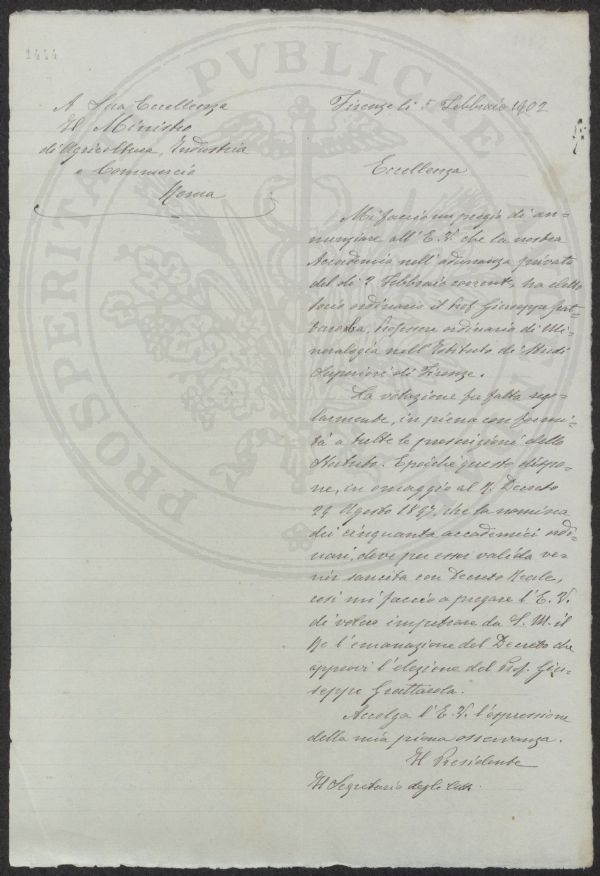 1444
A Sua Eccellenza
Il Ministro
di Agricoltura, Industria
e Commercio
Roma
Firenze li 5 Febbraio 1902
Eccellenza
Mi faccio un pregio di an=
nunziare all'E. V. che la nostra
Accademia nell'adunanza privata
del dì 2 Febbraio corrente, ha eletto
socio ordinario il Prof. Giuseppe Grat=
tarola, Professore ordinario di Mi=
neralogia nell'Istituto di Studi
Superiori di Firenze.
La votazione fu fatta rego=
larmente, in piena conformi=
tà a tutte le prescrizioni dello
Statuto. E poiché questo dispo=
ne, in omaggio al R. Decreto
29 Agosto 1897, che la nomina
dei cinquanta accademici ordi=
nari, deve per esser valida ve=
nir sancita con Decreto Reale,
così mi faccio a pregare l'E. V.
di voler impetrare da S. M. il
Re l'emanazione del Decreto che
approvi l'elezione del Prof. Giu=
seppe Grattarola.
Accolga l'E. V. l'espressione
della mia piena osservanza.
Il Presidente
Il Segretario degli Atti
PROSPERITA PVBLICAE